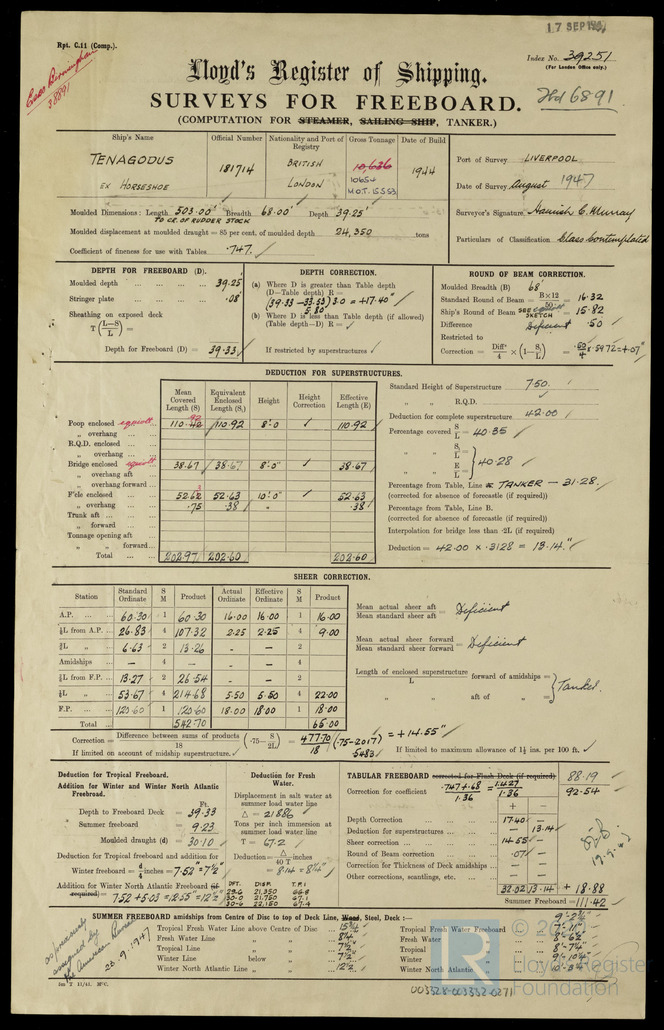 17 SEP 1951
Rpt. C.11 (Comp.).
Index No. 39251
(For London Office only.)
38891
Lloyd's Register of Shipping.
SURVEYS FOR FREEBOARD.
6891
(COMPUTATION FOR STEAMER, SAILING SHIP, TANKER.)
Ship's Name Official Number Nationality and Port of Registry Gross Tonnage Date of Build
TENAGODUS
EX HORSESHOE
181714
BRITISH
LONDON
10,636
10654
M.O.T. 15.5.53
1944
Port of Survey LIVERPOOL
Date of Survey August 1947
Surveyor's Signature Hamish C. Murray
Particulars of Classification Class Contemplated
Moulded Dimensions: Length 503.00' Breadth 68.00' Depth 39.25'
TO CR. OF RUDDER STOCK
Moulded displacement at moulded draught = 85 per cent. of moulded depth 24,350 tons
Coefficient of fineness for use with Tables .747.
DEPTH FOR FREEBOARD (D).
Moulded depth 39.25
Stringer plate .08'
Sheathing on exposed deck
T (L—S / L) =
Depth for Freeboard (D) = 39.33
DEPTH CORRECTION.
(a) Where D is greater than Table depth
(D—Table depth) R =
(39.33 - 33.53) 3.0 = +17.40"
5.80
(b) Where D is less than Table depth (if allowed)
(Table depth—D) R =
If restricted by superstructures
ROUND OF BEAM CORRECTION.
Moulded Breadth (B) 68'
Standard Round of Beam = B×12 / 50 = 16.32
Ship's Round of Beam SEE SKETCH = 15.82
Difference Deficient .50
Restricted to
Correction = Diffce / 4 × (1 — S₁ / L) = .50 / 4 × .5972 = +.07"
DEDUCTION FOR SUPERSTRUCTURES.
Mean Covered Length (S) Equivalent Enclosed Length (S₁) Height Height Correction Effective Length (E)
Poop enclosed equivt. 110.92 110.92 8'-0 110.92
„ overhang
R.Q.D. enclosed
„ overhang
Bridge enclosed equivt. 38.67 38.67 8'-0" 38.67
„ overhang aft
„ overhang forward
F'cle enclosed 52.63 52.63 10'-0" 52.63
„ overhang .75 .38 „ .38
Trunk aft
„ forward
Tonnage opening aft
„ „ forward
Total 202.97 202.60 202.60
Standard Height of Superstructure 7.50.
„ „ R.Q.D.
Deduction for complete superstructure 42.00
Percentage covered S / L = 40.35
„ „ S₁ / L = } 40.28
„ „ E / L =
Percentage from Table, Line A TANKER — 31.28.
(corrected for absence of forecastle (if required))
Percentage from Table, Line B.
(corrected for absence of forecastle (if required))
Interpolation for bridge less than ·2L (if required)
Deduction = 42.00 × .3128 = 13.14."
SHEER CORRECTION.
Station Standard Ordinate S M Product Actual Ordinate Effective Ordinate S M Product
A.P. 60.30 1 60.30 16.00 16.00 1 16.00
⅙L from A.P. 26.83 4 107.32 2.25 2.25 4 9.00
⅓L „ 6.63 2 13.26 — — 2
Amidships — 4 — — — 4
⅓L from F.P. 13.27 2 26.54 — — 2
⅙L „ 53.67 4 214.68 5.50 5.50 4 22.00
F.P. 120.60 1 120.60 18.00 18.00 1 18.00
Total 542.70 65.00
Mean actual sheer aft / Mean standard sheer aft = Deficient
Mean actual sheer forward / Mean standard sheer forward = Deficient
Length of enclosed superstructure / L forward of amidships = } Tanker.
„ „ aft of „ =
Correction = Difference between sums of products / 18 (·75 — S / 2L) = 477.70 / 18 (.75-.2017) = +14.55"
.5483
If limited on account of midship superstructure.
If limited to maximum allowance of 1½ ins. per 100 ft.
Deduction for Tropical Freeboard.
Addition for Winter and Winter North Atlantic Freeboard.
Ft.
Depth to Freeboard Deck = 39.33
Summer freeboard = 9.23
Moulded draught (d) = 30.10
Deduction for Tropical freeboard and addition for
Winter freeboard = d / 4 inches = 7.52" = 7½"
Addition for Winter North Atlantic Freeboard (if required) =
7.52 + 5.03 = 12.55" = 12½"
Deduction for Fresh Water.
Displacement in salt water at summer load water line
Δ = 21,886
Tons per inch immersion at summer load water line
T = 67.2
Deduction = Δ / 40 T inches
= 8.14 = 8¼"
DFT. DISP. T.P.I
29.6 21,350 66.8
30.0 21,750 67.1
30.6 22,150 67.4
TABULAR FREEBOARD corrected for Flush Deck (if required) 88.19
Correction for coefficient .747+.68 / 1.36 = 1.427 / 1.36 92.54
+ —
Depth Correction 17.40 —
Deduction for superstructures — 13.14
Sheer correction 14.55 —
Round of Beam correction .07 —
Correction for Thickness of Deck amidships — —
Other corrections, scantlings, etc.
32.02 13.14 + 18.88
Summer Freeboard = 111.42
SUMMER FREEBOARD amidships from Centre of Disc to top of Deck Line, Wood, Steel, Deck:—
Tropical Fresh Water Line above Centre of Disc 15¾
Fresh Water Line „ „ 8¼
Tropical Line „ „ 7½
Winter Line below „ 7½
Winter North Atlantic Line „ „ 12½
Tropical Fresh Water Freeboard 7'-11"
Fresh Water „
Tropical „
Winter „ 9'-10¾"
Winter North Atlantic „
as previously assigned by the American Bureau
23.9.1947
5m T 11/41. HP/C.
003328-003332-0271
© 20
Lloyd's Register
Foundation